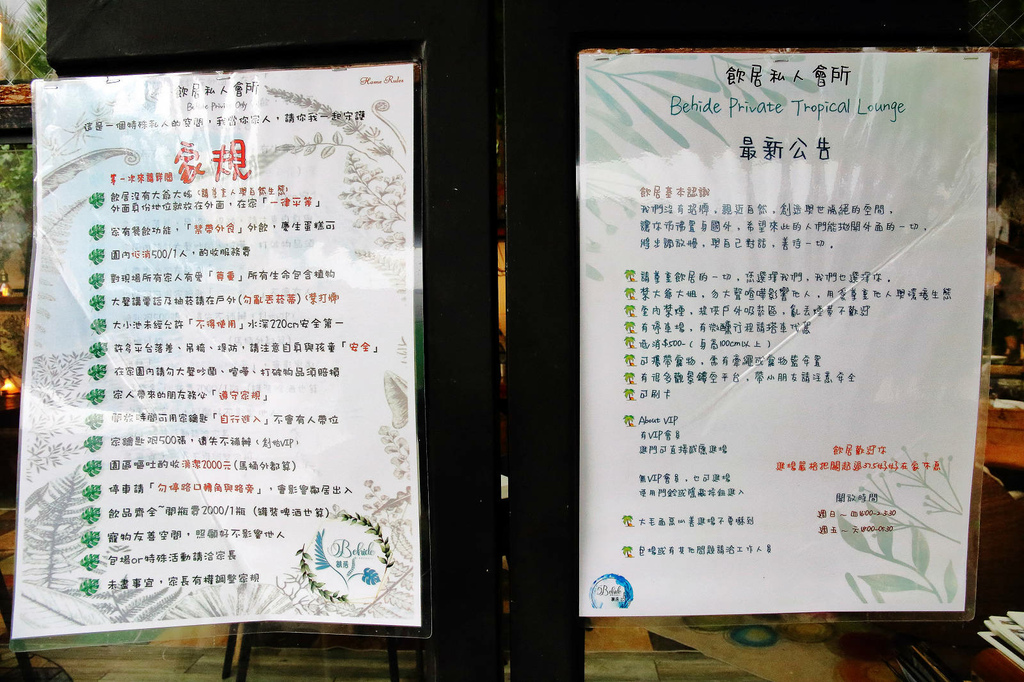 Home Rules
飲居私人會所
Behide Private Only
這是一個特殊私人的空間，我當你家人，請你我一起守護
家規
第一次來請詳閱
飲居沒有大爺大姊（請尊重人與自然生態）
外面身份地位就放在外面，在家「一律平等」
家有餐飲功能，「禁帶外食」外飲，慶生蛋糕可
園內低消500/1人，酌收服務費
對現場所有家人有愛「尊重」所有生命包含植物
大聲講電話及抽菸請在戶外(勿亂丟菸蒂)
大小池未經允許「不得使用」水深220cm安全第一
許多平台落差、吊橋、堤防，請注意自身與孩童「安全」
在家園內請勿大聲吵鬧、喧嘩、打破物品須賠損
家人帶來的朋友務必「遵守家規」
開放時間可用家鑰匙「自行進入」不會有人帶位
家鑰匙限500張，遺失不補辦（創始VIP）
園區嘔吐酌收清潔2000元(馬桶外都算)
停車請「勿停路口轉角與路旁」，會影響鄰居出入
飲品齊全~開瓶費2000/1瓶（鐵裝啤酒也算）
寵物友善空間，照顧好不影響他人
包場or特殊活動請洽家長
未盡事宜，家長有權調整家規
Behide
飲居
飲居私人會所
Behide Private Tropical Lounge
最新公告
飲居基本認識
我們沒有招牌，親近自然，創造與世隔絕的空間，
讓你彷彿置身國外，希望來此的人們能拋開外面的一切，
將步調放慢，與自己對話，善待一切。
請尊重飲居的一切，您選擇我們，我們也選擇你。
禁大爺大姐，勿大聲喧嘩影響他人，用愛尊重他人與環境生態
室內禁煙，提供戶外吸菸區，亂丟煙蒂不歡迎
有停車場，有微醺行程請搭車代駕
低消$500-（身高100cm以上）
可攜帶寵物，需有牽繩或寵物籃安置
有很多觀景鏤空平台，帶小朋友請注意安全
可刷卡
About VIP
有VIP會員
進門可直接感應進場
無VIP會員，也可進場
使用門鈴或隱藏按鈕進入
飲居歡迎你
開放時間
大毛面惡心善進場不要嚇到
包場或有其他問題請洽工作人員
Behide
飲居